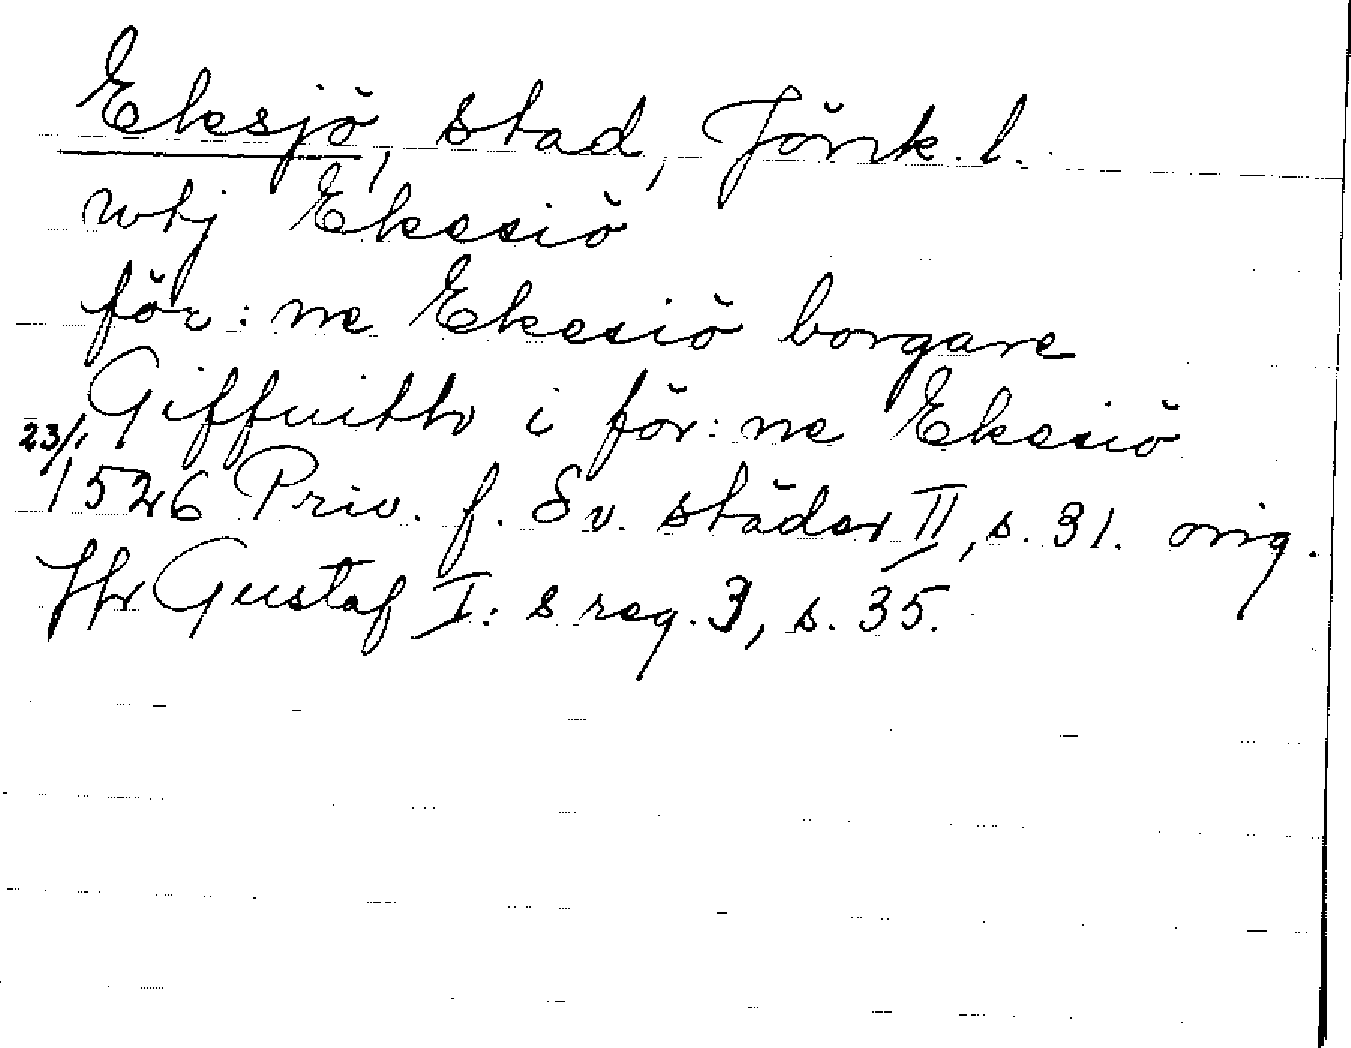 Eksjö, stad, Jönk. l.
wtj Ekesiö
för:ne Ekesiö borgare
Giffuith i för:ne Ekesiö
23/1
1526 Priv. f. Sv. städer II, s. 31. orig.
Jfr Gustaf I:s reg. 3, s. 35.